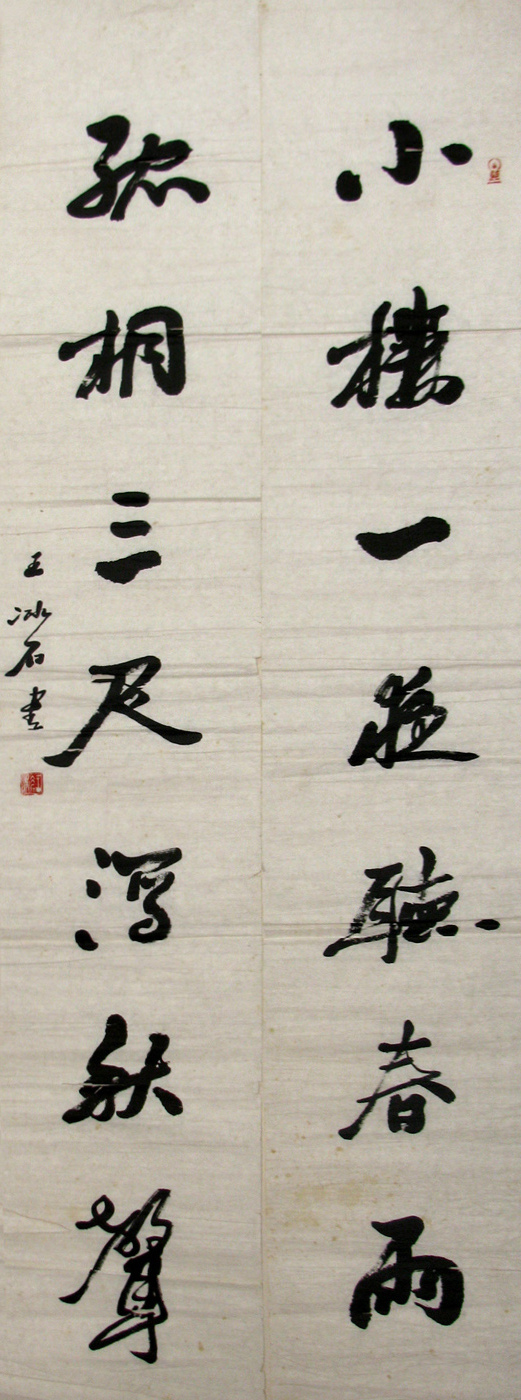 小樓一夜聽春雨
孤桐三尺瀉秋聲
王冰石書